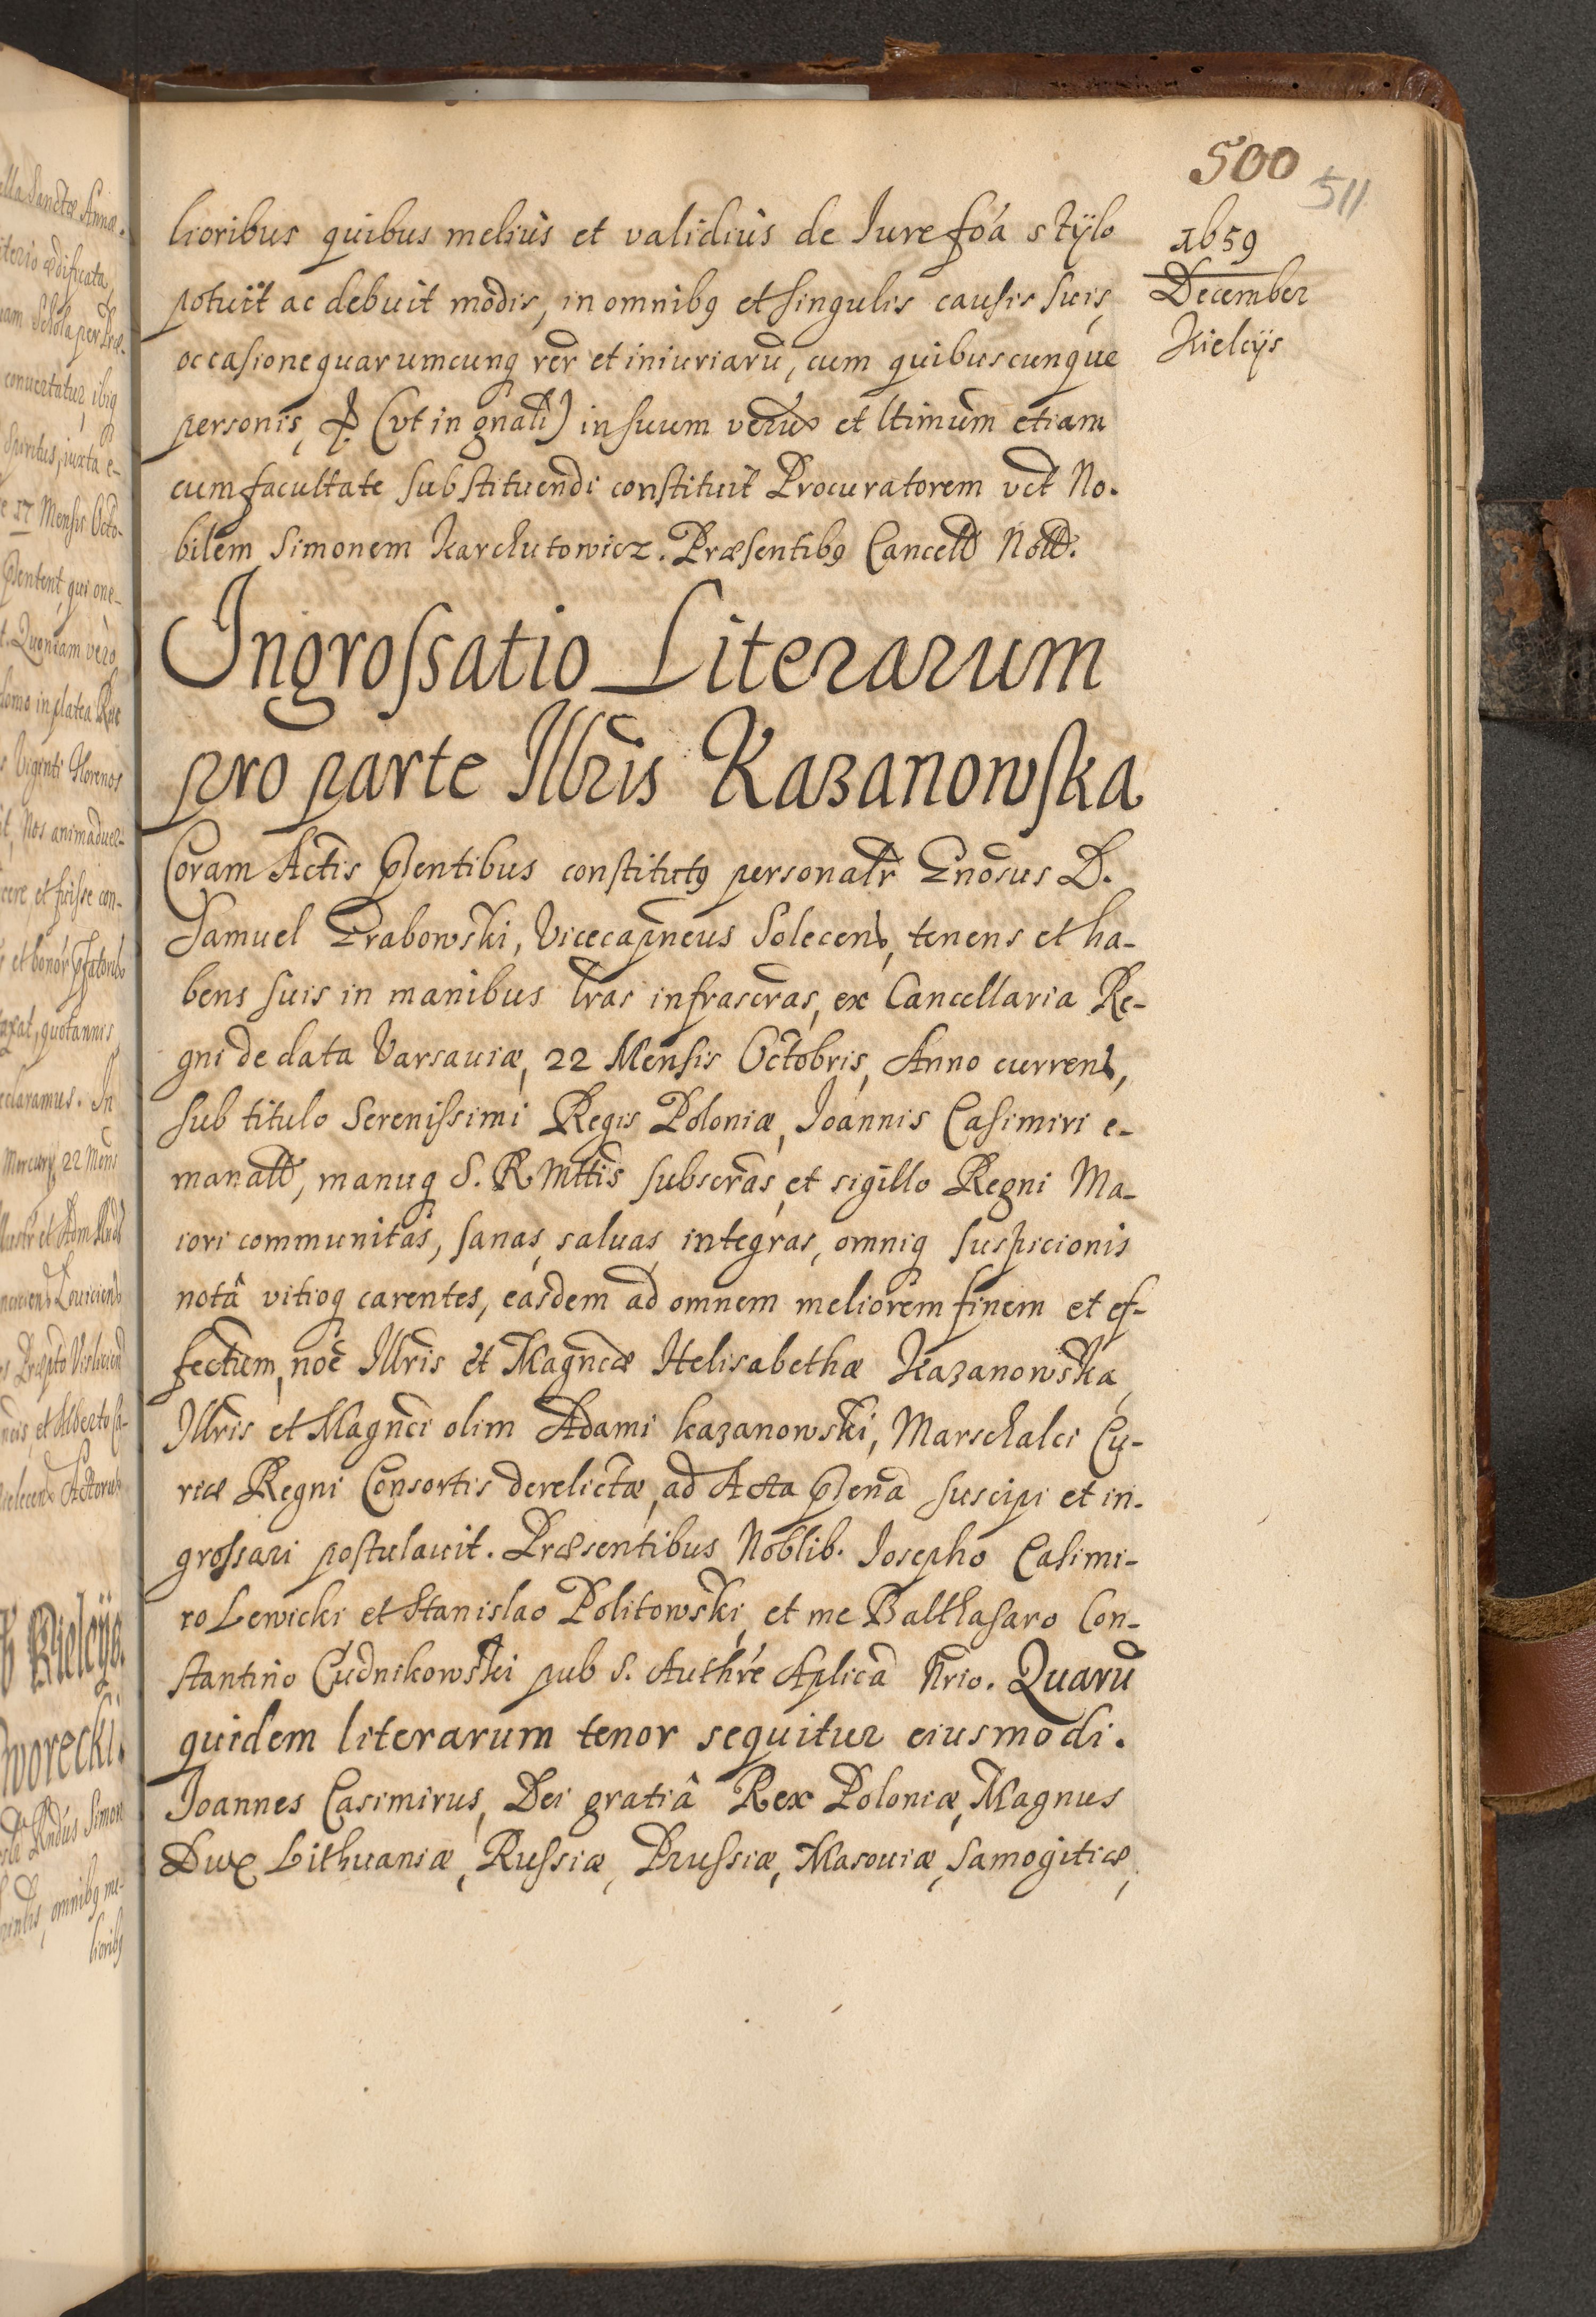 500
511
1659
December
Kielcÿs
lioribus quibus meliùs et validiùs de Iure foá stÿlo
potuit ac debuit modis, in omnibꝫ et singulis causis suis,
occasione quarumcunqꝫ rer̃ et iniuriarũ, cum quibuscunque
personis, (vt in gn̄ali) in suum verũ et ltimum etiam
cum facultate substituendi constituit Procuratorem vct̃ No.
bilem Simonem Karchutowicz. Præsentibꝫ Cancell Nott.
Ingrossatio Literarum
pro parte Illr̃is Kazanowska
Coram Actis pñtentibus constitutꝫ personalr̃ Gnõsus D.
Samuel Grabowski, Vicecapñeus Solecen, tenens et ha-
bens suis in manibus lr̃as infrascr̃as, ex Cancellaria Re-
gni de data Varsauiæ, 22 Mensis Octobris, Anno curren,
sub titulo Serenissimi Regis Poloniæ, Ioannis Casimiri e-
manatt, manuqꝫ S. R. Mttis subscr̃as, et sigillo Regni Ma-
iori communitas, sanas, saluas, integras, omniqꝫ suspicionis
notâ vitioqꝫ carentes, easdem ad omnem meliorem finem et ef-
fectum, nõe Illr̃is et Magñcæ Helisabethæ Kazanowska,
Illr̃is et Magñci olim Adami Kazanowski, Marschalci Cu-
riæ Regni Consortis derelictæ, ad Acta pñtena suscipi et in-
grossari postulauit. Præsentibus Noblib. Iosepho Casimi-
ro Lewicki et Stanislao Politowski, et me Balthasaro Con-
stantino Cudnikowski pub S. Authr̃e Aplicã Nrio. Quarũ
quidem literarum tenor sequitur eiusmodi.
Joannes Casimirus, Dei gratiâ Rex Poloniæ, Magnus
Dux Lithuaniæ, Russiæ, Prussiæ, Masouiæ, Samogitiæ,